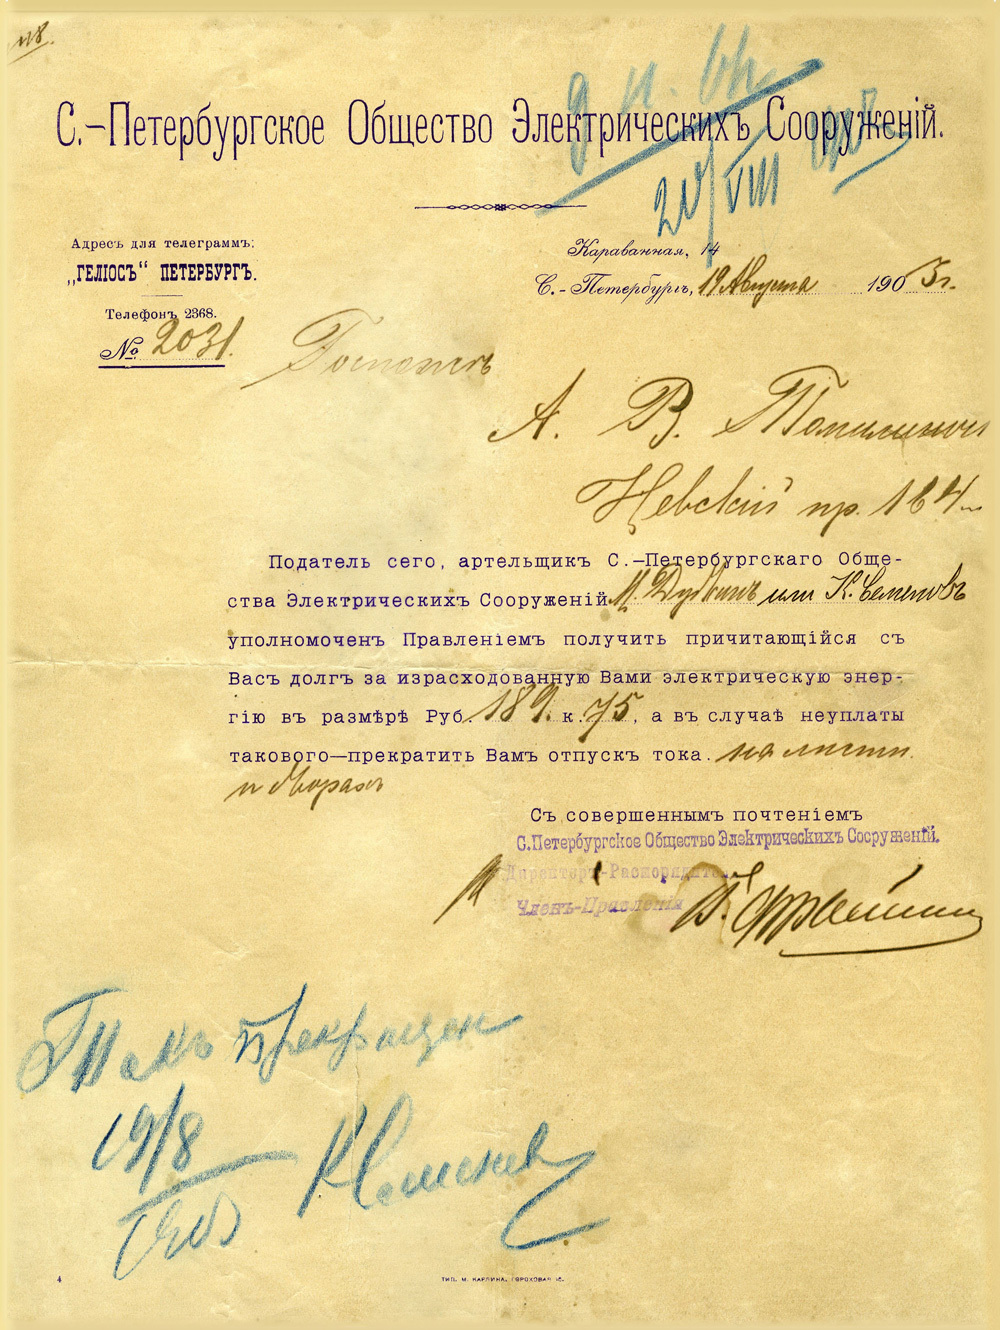 С.-Петербургское Общество Электрическихъ Сооруженій.
20/VIII
Адресъ для телеграммъ:
„ГЕЛІОСЪ“ ПЕТЕРБУРГЪ.
Телефонъ 2368.
№ 2031.
Караванная, 14
С.-Петербургъ, 19 Августа 1903 г.
Госпожѣ
А. В.
Невскій пр. 184
Податель сего, артельщикъ С.-Петербургскаго Обще-
ства Электрическихъ Сооруженій М. Дубкинъ или К. Семеновъ
уполномоченъ Правленіемъ получить причитающійся съ
Васъ долгъ за израсходованную Вами электрическую энер-
гію въ размѣрѣ Руб. 189. к. 75, а въ случаѣ неуплаты
такового—прекратить Вамъ отпускъ тока.
Съ совершеннымъ почтеніемъ
С.Петербургское Общество Электрическихъ Сооруженій.
Директоръ-Распорядитель
Членъ-Правленія
Токъ прекращен
19/8
К Семенов
4
ТИП. М. КАРЛИНА, ГОРОХОВАЯ